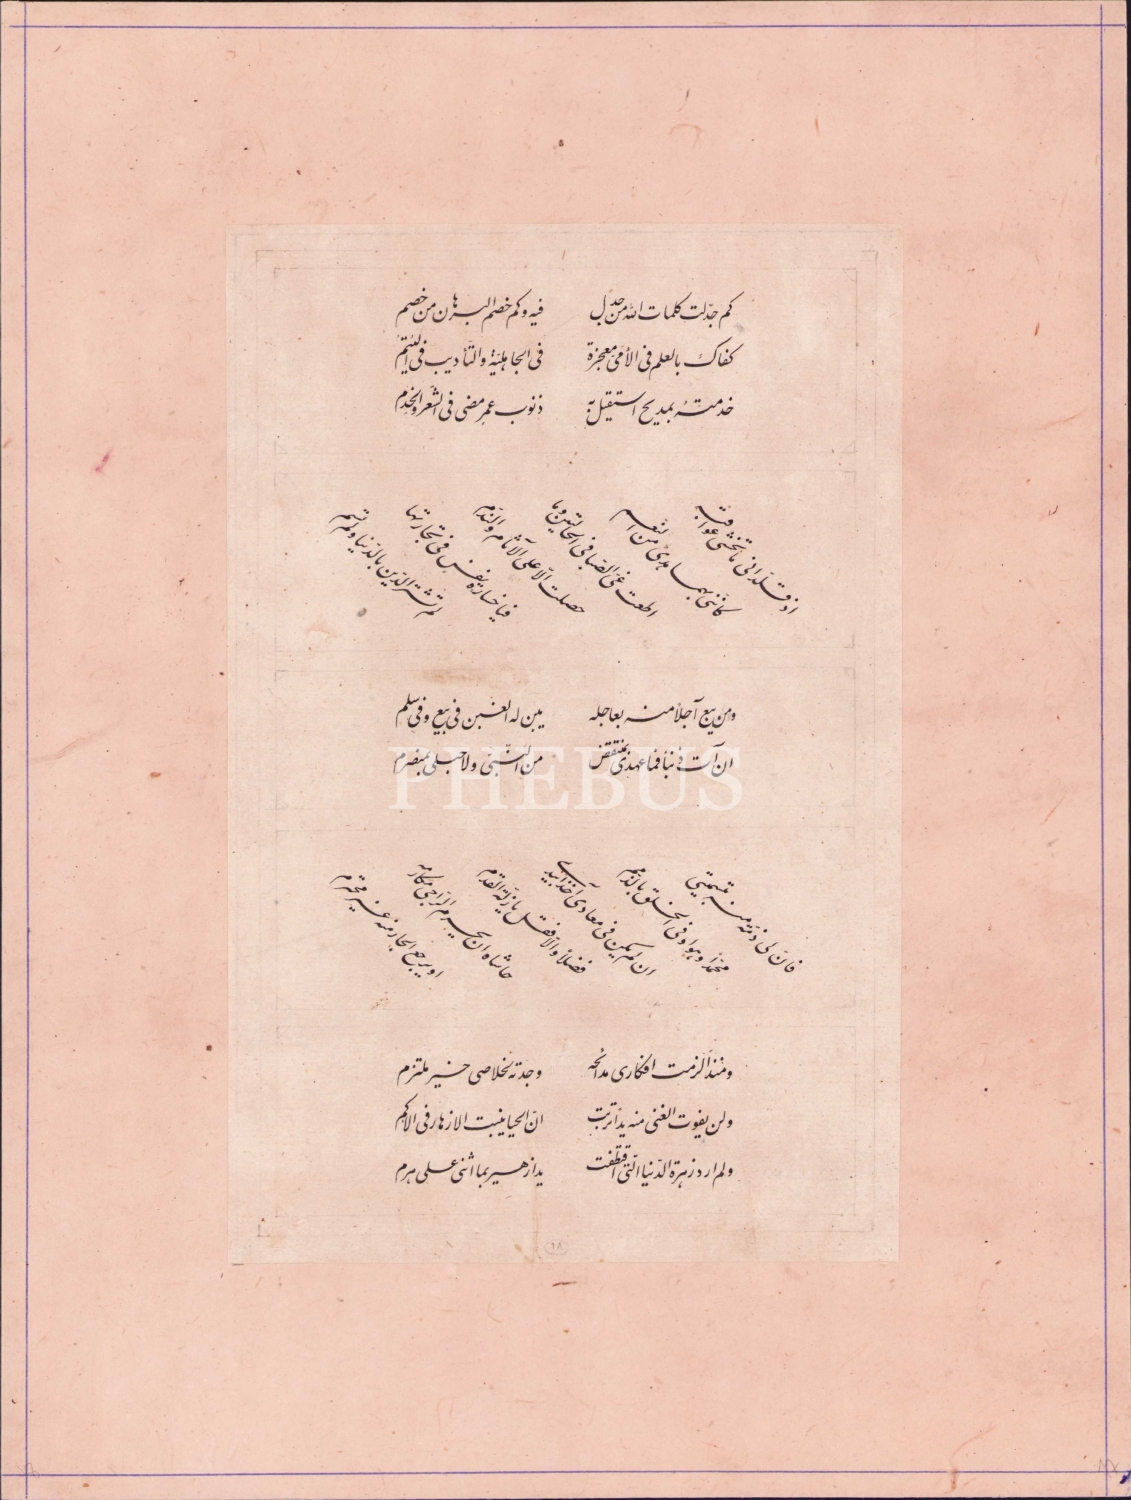 كم جدّلت كلمات الله من جدل فيه وكم خصم البرهان من خصم
كفاك بالعلم فى الأمّىّ معجزة فى الجاهليّة والتأديب فى اليُتم
خدمته بمديح استقيل به ذنوب عمر مضى فى الشّعر والخدم
اذ قلّدانى ما تخشى عواقبه
كأنّنى بهما هدى من النّعم
اطعت غىّ الصّبا فى الحالتين وما
حصلت الّا على الآثام والنّدم
فيا خسارة نفس فى تجارتها
لم تشتر الدّين بالدّنيا ولم تسم
ومن يبع آجلاً منه بعاجله يبن له الغبن فى بيع وفى سلم
ان آت ذنباً فما عهدى بمنتقض من النّبىّ ولا حبلى بمنصرم
فانّ لى ذمّة منه بتسميتى
محمّداً وهو اوفى الخلق بالذّمم
ان لم يكن فى معادى آخذاً بيدى
فضلاً والّا فقل يا زلّة القدم
حاشاه ان يحرم الرّاجى مكارمه
او يرجع الجار منه غير محترم
ومنذ الزمت افكارى مدائحه وجدته لخلاصى خير ملتزم
ولن يفوت الغنى منه يداً تربت انّ الحيا ينبت الازهار فى الاكم
ولم ارد زهرة الدّنيا الّتى اقتطفت يدا زهير بما اثنى على هرم
١٨
PHEBUS